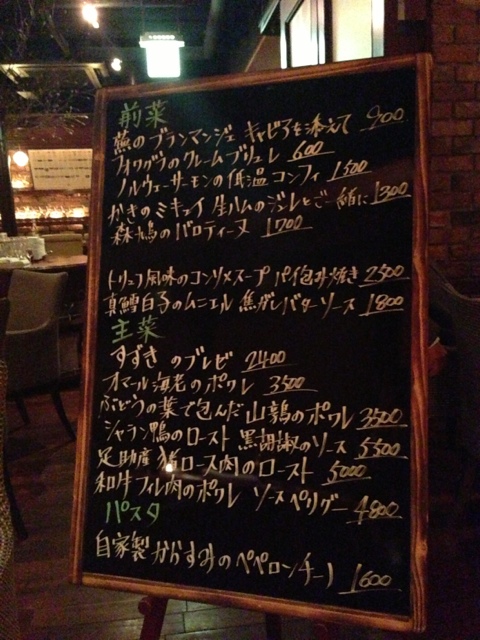 前菜
蕪のブランマンジェ キャビアを添えて 900
フォワグラのクレームブリュレ 600
ノルウェーサーモンの低温コンフィ 1500
かきのミキュイ 生ハムのジュレとご一緒に 1300
森鳩のバロティーヌ 1700
トリュフ風味のコンソメスープ パイ包み焼き 2500
真鱈白子のムニエル 焦がしバターソース 1800
主菜
すずき のブレゼ 2400
オマール海老のポワレ 3500
ぶどうの葉で包んだ山鶉のポワレ 3500
シャラン鴨のロースト 黒胡椒のソース 5500
足助産 猪ロース肉のロースト 5000
和牛フィレ肉のポワレ ソースペリグー 4800
パスタ
自家製からすみのペペロンチーノ 1600